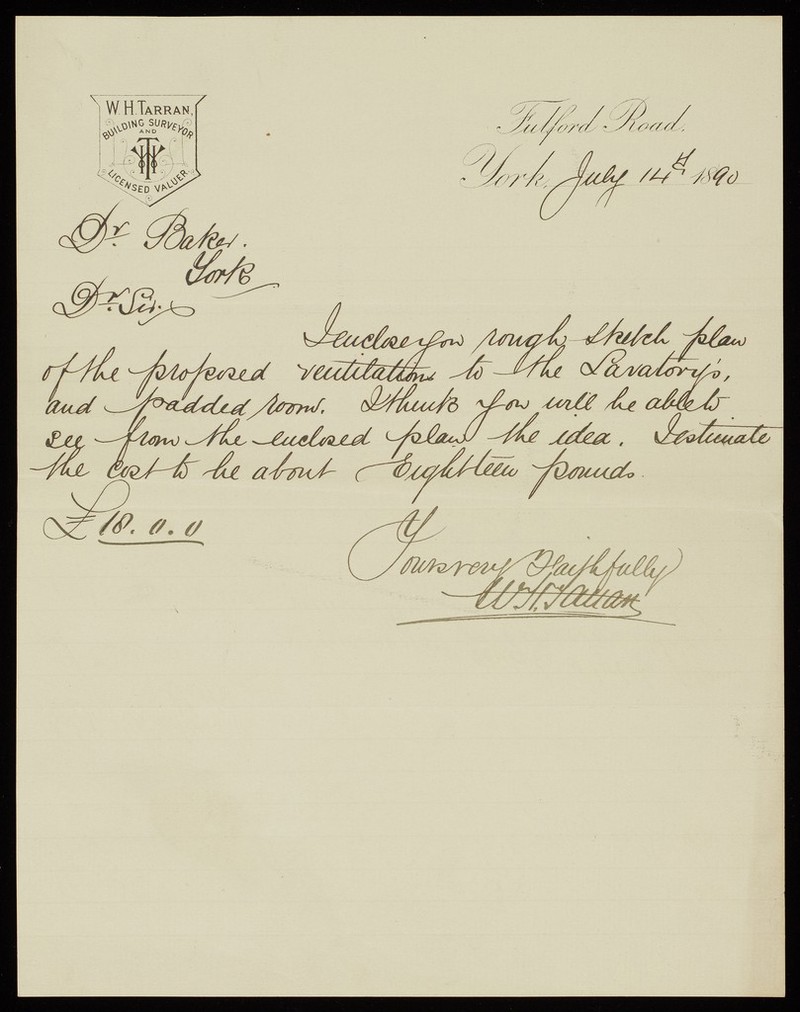 W. H. TARRAN,
BUILDING SURVEYOR
AND
LICENSED VALUER
Fulford Road.
York, July 14th 1890
Dr. Baker.
York
Dr. Sir.
I enclose you rough sketch plan
of the proposed ventilations to the Lavatory's,
and padded room. I think you will be able to
see from the enclosed plan the idea. I estimate
the cost to be about Eighteen pounds.
£18. 0. 0
Yours very Faithfully
W. H. Tarran